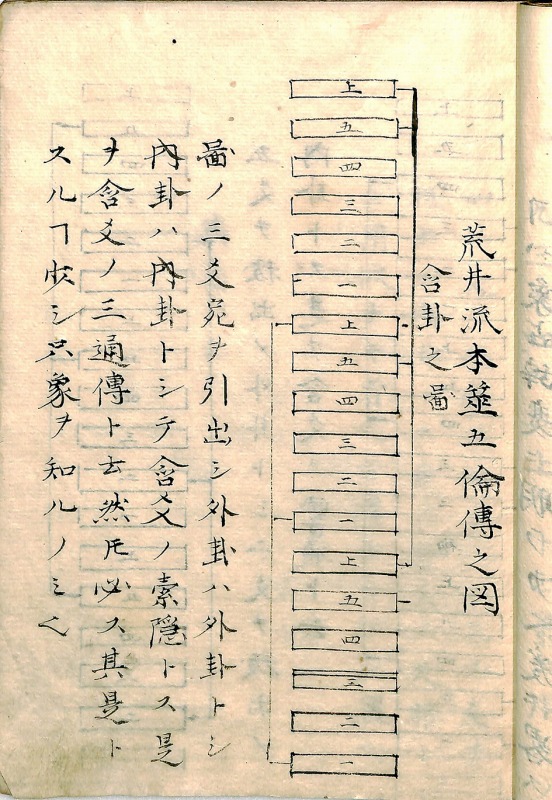 荒井流本筮五倫傳之図
含卦之啚
上
五
四
三
二
一
上
五
四
三
二
一
上
五
四
三
二
一
啚ノ三爻宛ヲ引出シ外卦ハ外卦トシ
内卦ハ内卦トシテ含爻ノ索隠トス是
ヲ含爻ノ三通傳ト云然𪜈必ス其是ト
スルヿシ只象ヲ知ルノミ